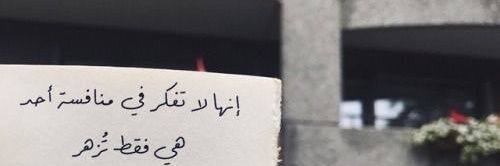 إنها لا تفكر في منافسة أحد
هي فقط تُزهر